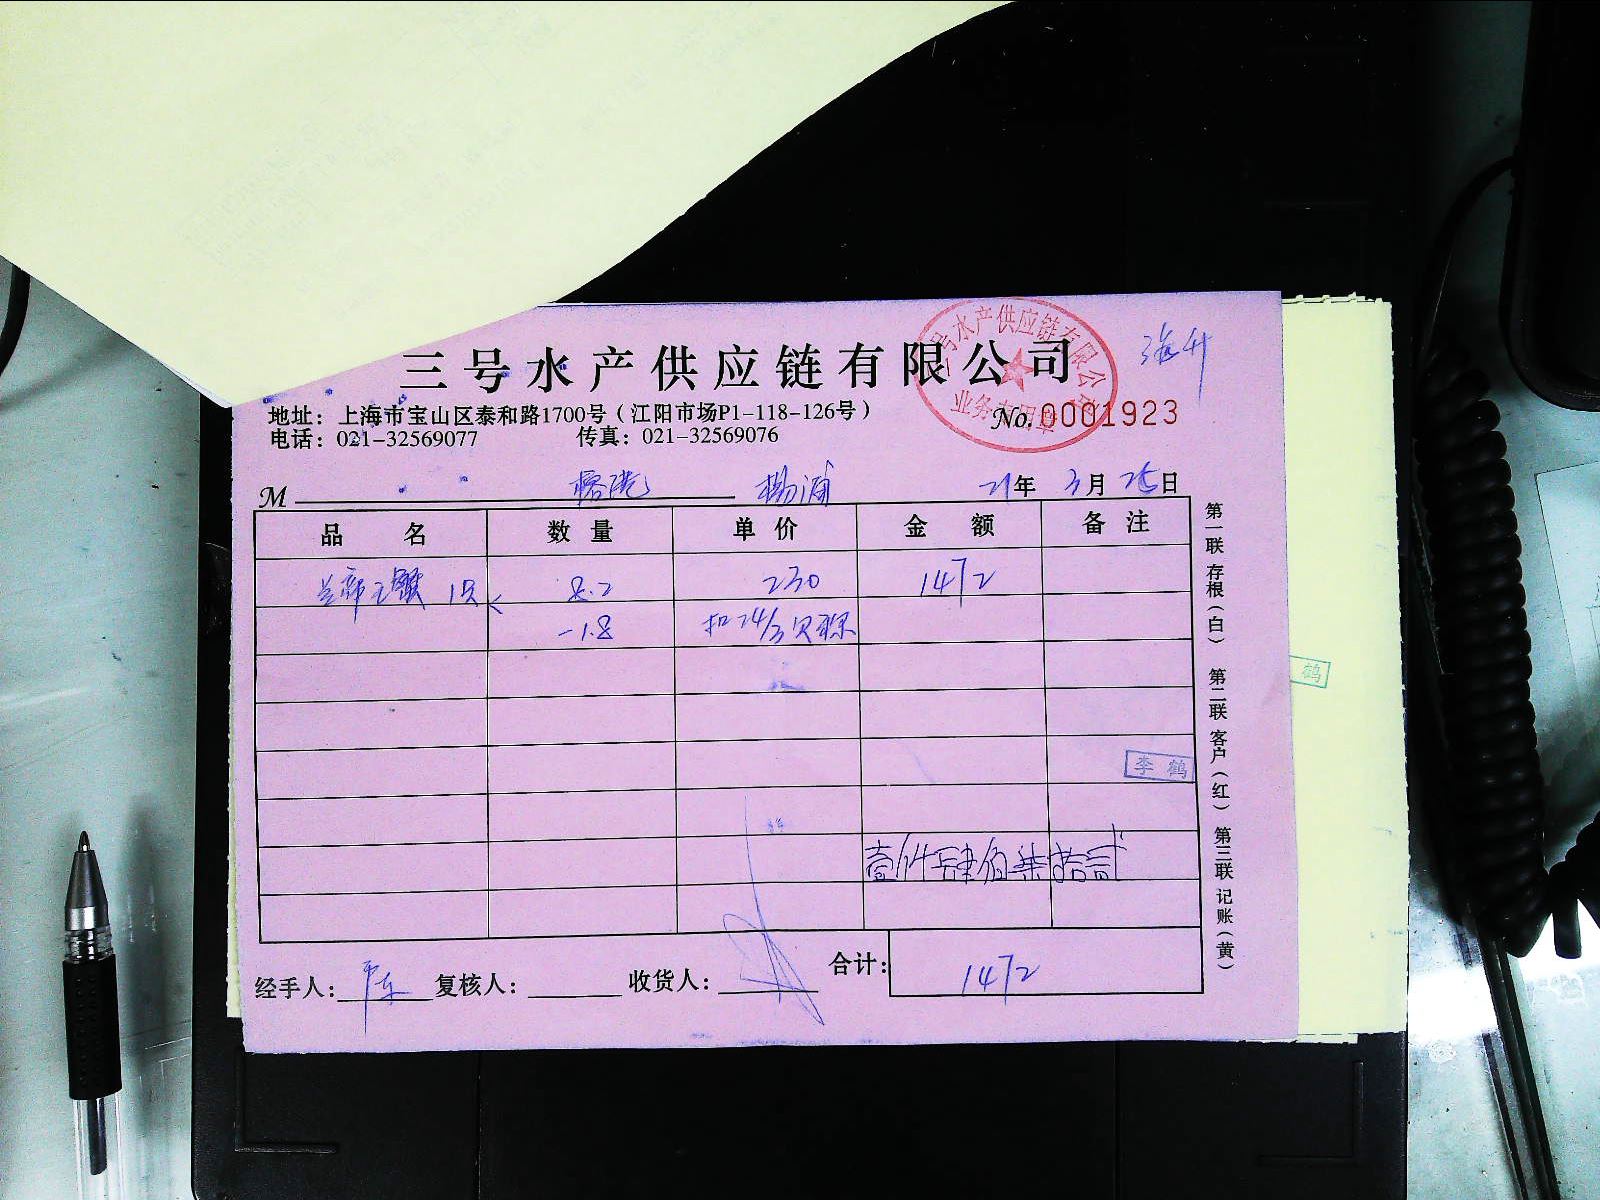 三号水产供应链有限公司
三号水产供应链有限公司
业务专用章
海升
地址：上海市宝山区泰和路1700号（江阳市场P1-118-126号）
No. 0001923
电话：021-32569077 传真：021-32569076
M 榕港 杨浦 21年 3月 25日
品名 数量 单价 金额 备注
兰帝王蟹 1只 8.2 230 1472
-1.8 扣24/3贝课
李鹤
鹤
壹仟肆佰柒拾贰
经手人： 复核人： 收货人： 合计： 1472
第一联 存根（白） 第二联 客户（红） 第三联 记账（黄）